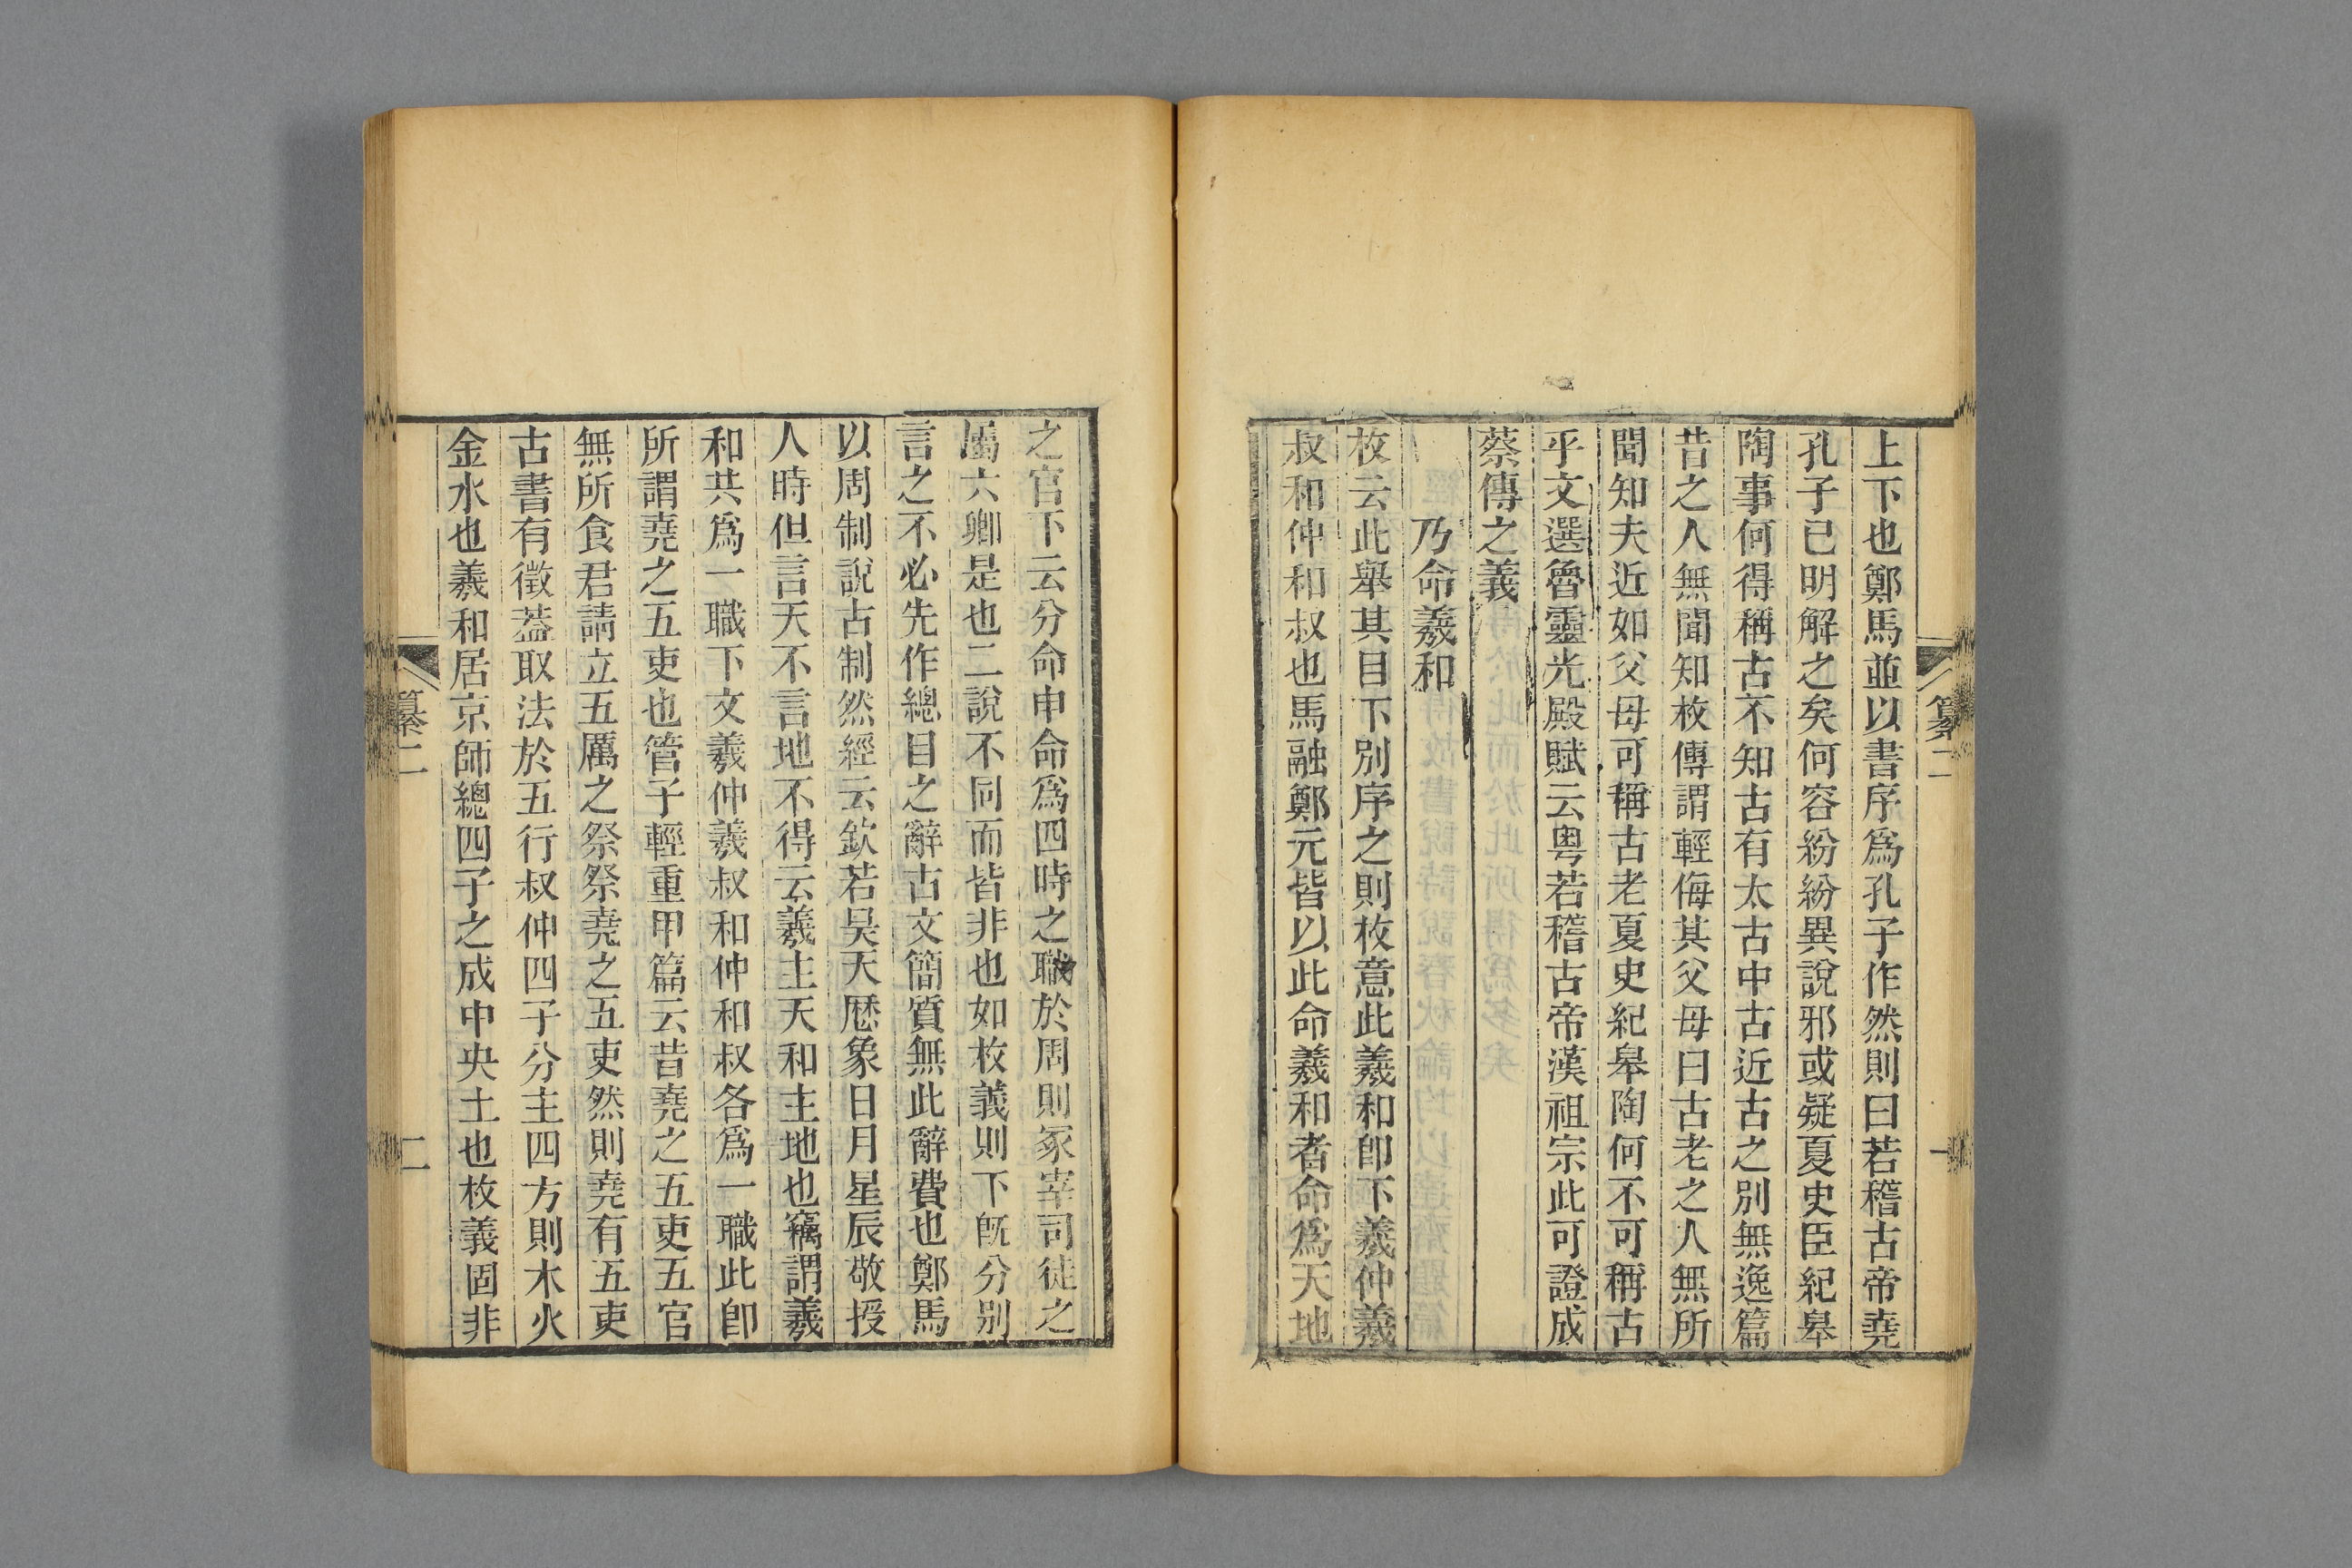 上下也鄭馬並以書序爲孔子作然則曰若稽古帝堯
孔子已明解之矣何容紛紛異說邪或疑夏史臣紀皋
陶事何得稱古不知古有太古中古近古之別無逸篇
昔之人無聞知枚傳謂輕侮其父母曰古老之人無所
聞知夫近如父母可稱古老夏史紀皋陶何不可稱古
乎文選魯靈光殿賦云粵若稽古帝漢祖宗此可證成
蔡傳之義
乃命羲和
枚云此舉其目下別序之則枚意此羲和卽下羲仲羲
叔和仲和叔也馬融鄭元皆以此命羲和者命爲天地
纂二
一
之官下云分命申命爲四時之職於周則冢宰司徒之
屬六卿是也二說不同而皆非也如枚義則下旣分別
言之不必先作總目之辭古文簡質無此辭費也鄭馬
以周制說古制然經云欽若昊天厯象日月星辰敬授
人時但言天不言地不得云羲主天和主地也竊謂羲
和共爲一職下文羲仲羲叔和仲和叔各爲一職此卽
所謂堯之五吏也管子輕重甲篇云昔堯之五吏五官
無所食君請立五厲之祭祭堯之五吏然則堯有五吏
古書有徵蓋取法於五行叔仲四子分主四方則木火
金水也羲和居京師總四子之成中央土也枚義固非
纂二
二